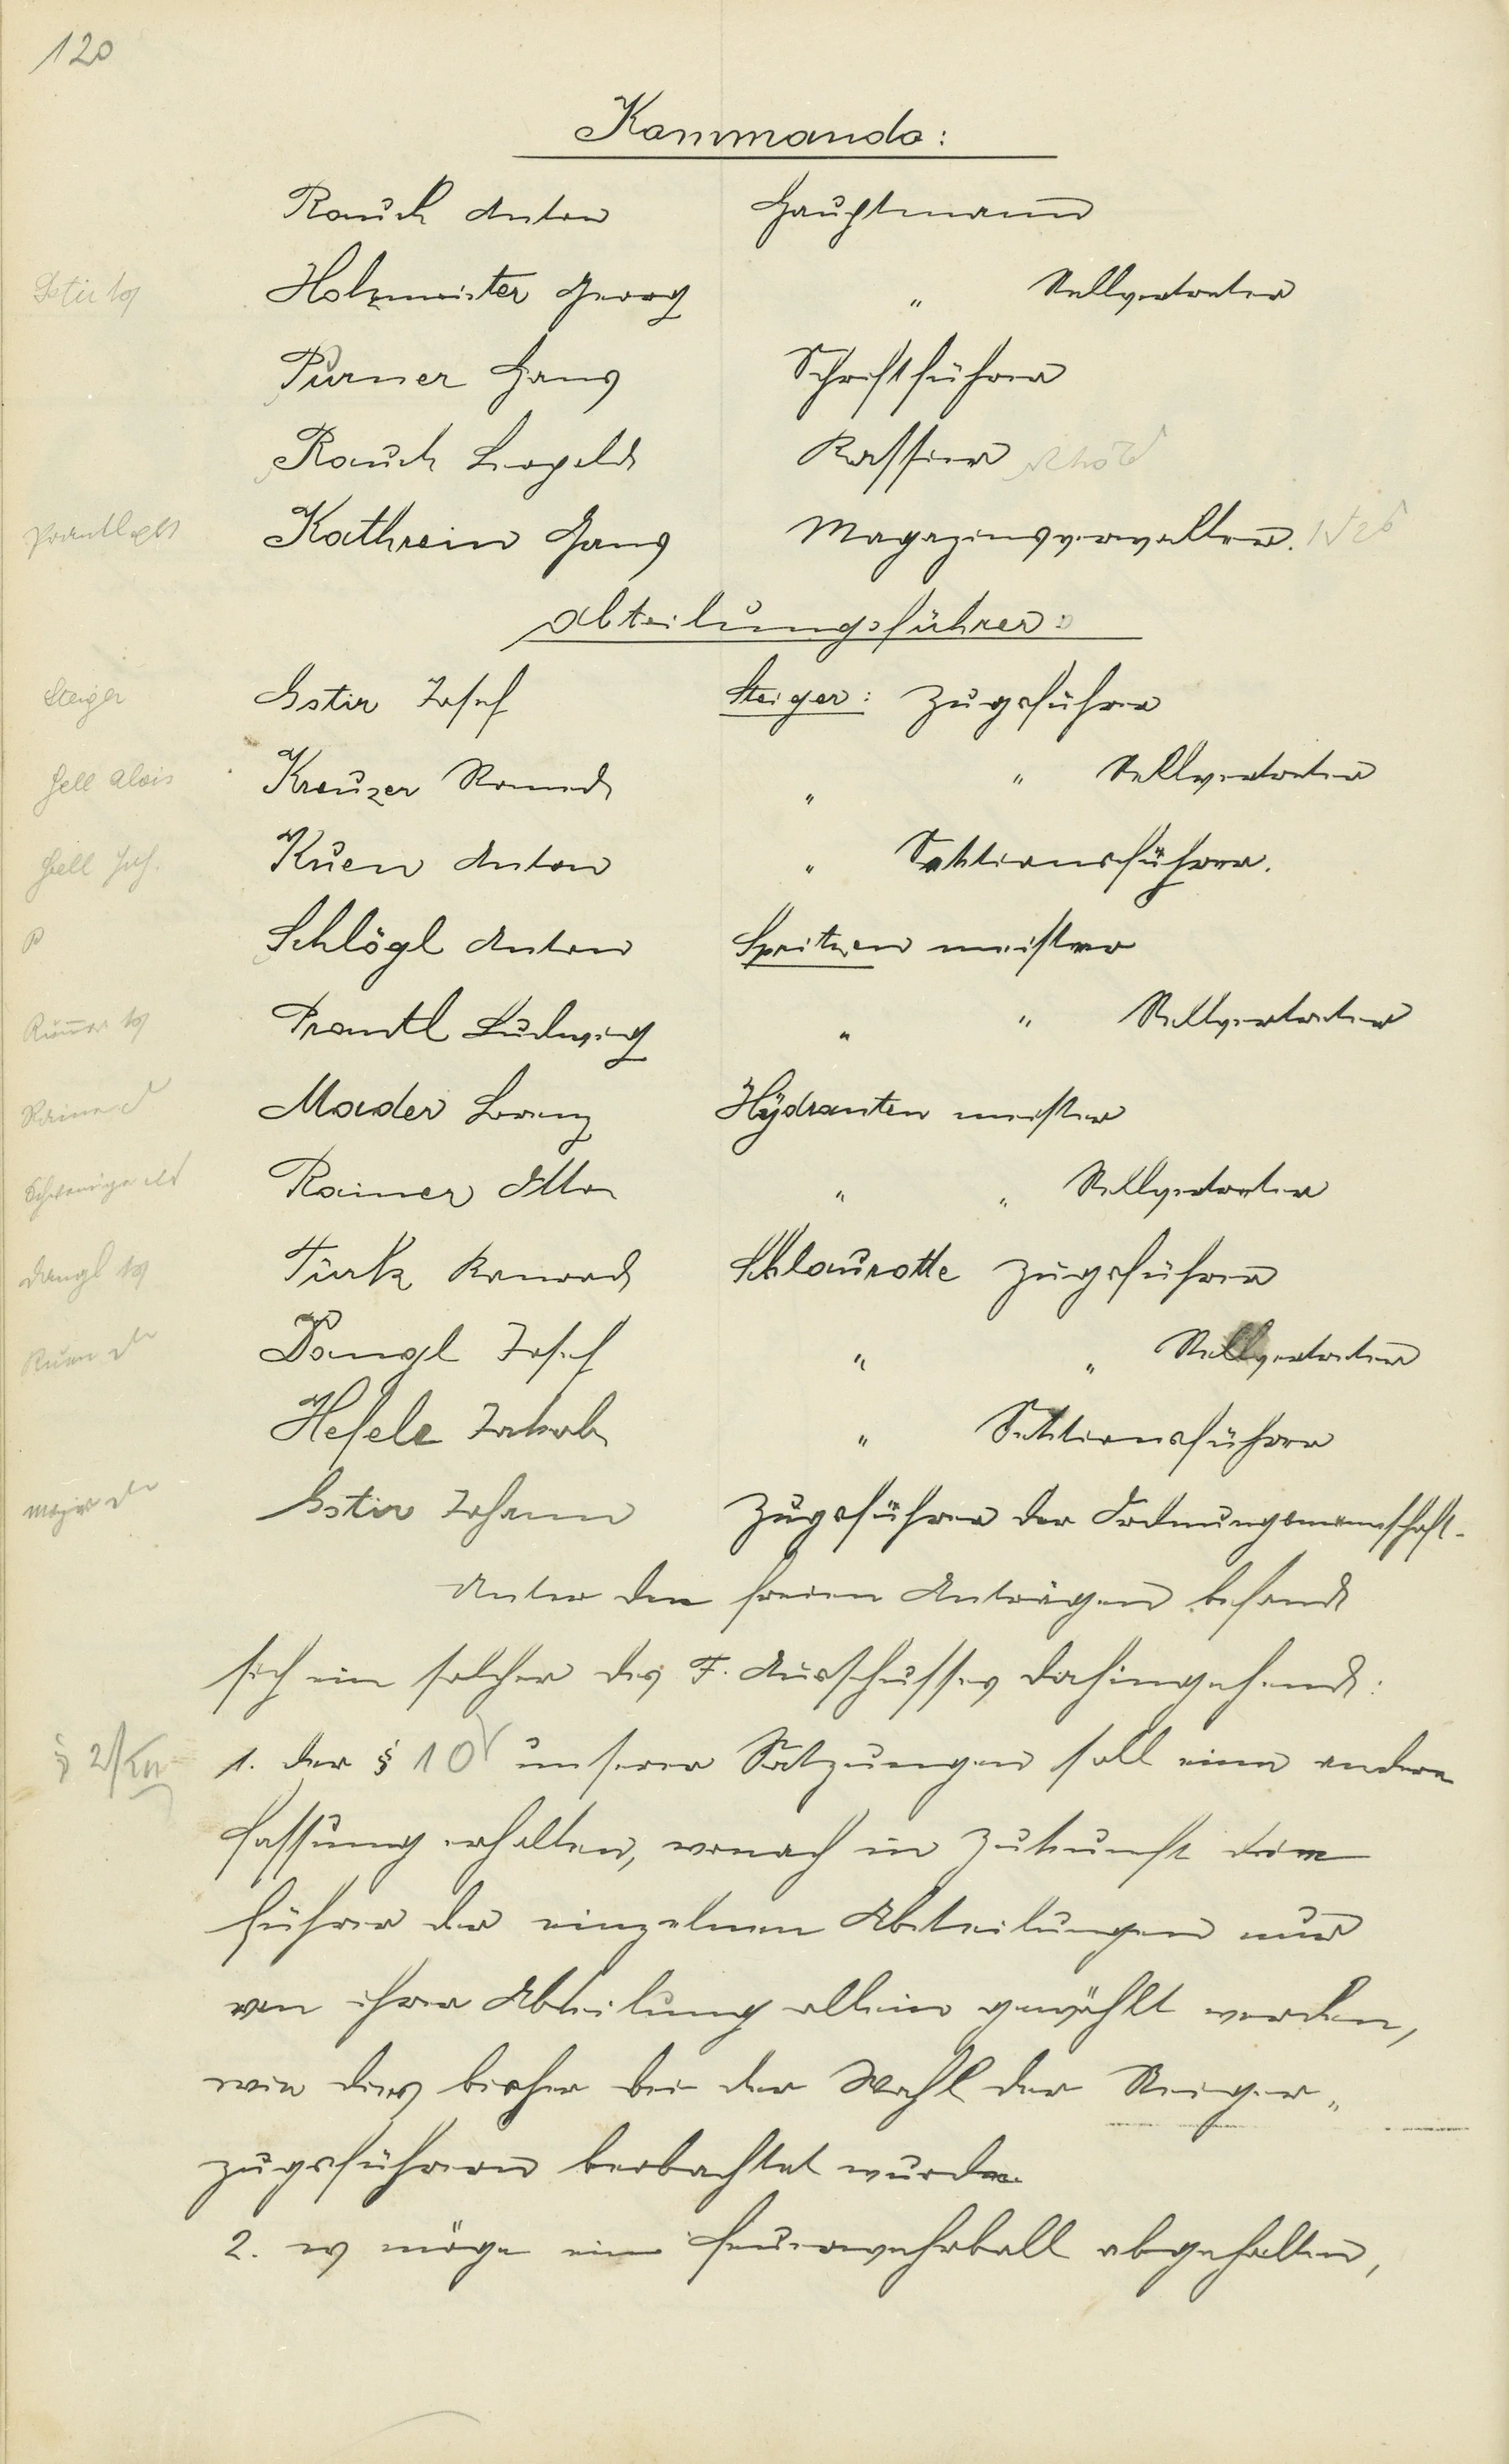 120
Kommando:
Rauch Anton Hauptmann
Holzmeister Georg " Stellvertreter
Purner Hans Schriftführer
Rauch Leopold Kassier
Kathrein Hans Magazinsverwalter.
Abteilungsführer:
Steiger Gstir Josef Steiger: Zugsführer
Hell Alois Kreuzer Romed " " Stellvertreter
Hell Jos. Kuen Anton " Sektionsführer.
P Schlögl Anton Spritzen meister
Prantl Ludwig " " Stellvertreter
Mader Lorenz Hydranten meister
Rainer Otto " " Stellvertreter
Dangl Türk Konrad Schlaurotte Zugsführer
Kuen Dangl Josef " " Stellvertreter
Hefele Jakob " Sektionsführer
Gstir Johann Zugsführer der Ordnungsmannschaft.
Unter den freien Anträgen befand
sich ein solcher des F. Ausschusses dahingehend:
1. der § 10 unserer Satzungen soll eine andere
Fassung erhalten, wonach in Zukunft die
Führer der einzelnen Abteilungen nur
von ihrer Abteilung allein gewählt werden,
wie dies bisher bei der Wahl der Steiger„
zugsführern beobachtet wurde.
2. es möge ein Feuerwehrball abgehalten,